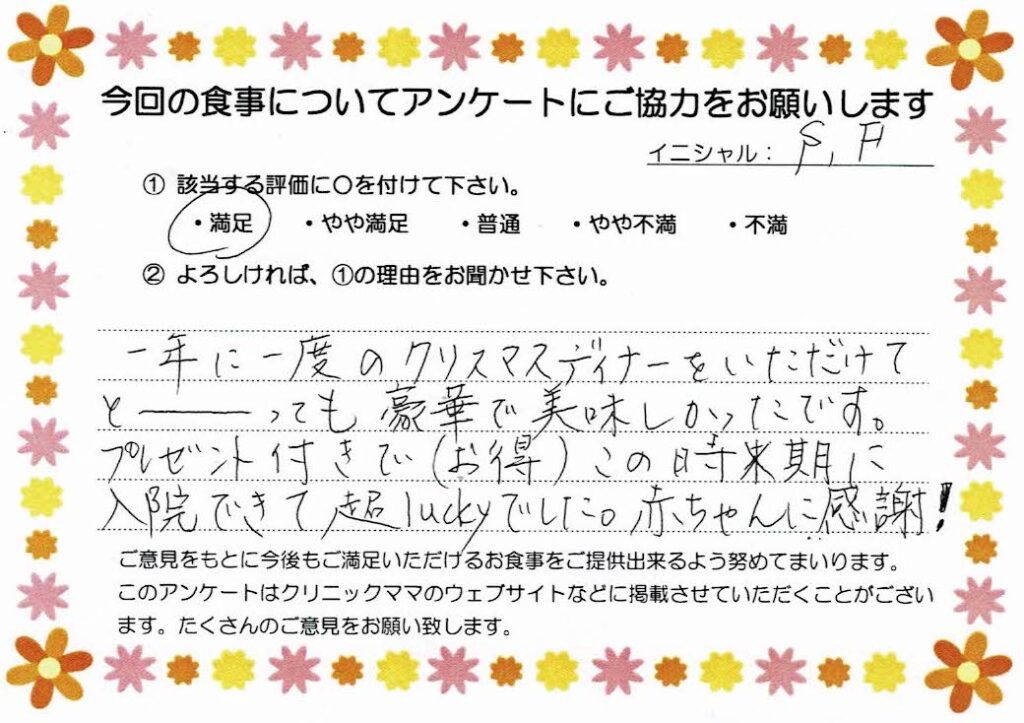 今回の食事についてアンケートにご協力をお願いします
イニシャル： S, F
① 該当する評価に〇を付けて下さい。
・満足 ・やや満足 ・普通 ・やや不満 ・不満
② よろしければ、①の理由をお聞かせ下さい。
一年に一度のクリスマスディナーをいただけて
と―――っても豪華で美味しかったです。
プレゼント付きで(お得)この時期に
入院できて超luckyでした。赤ちゃんに感謝！
ご意見をもとに今後もご満足いただけるお食事をご提供出来るよう努めてまいります。
このアンケートはクリニックママのウェブサイトなどに掲載させていただくことがござい
ます。たくさんのご意見をお願い致します。